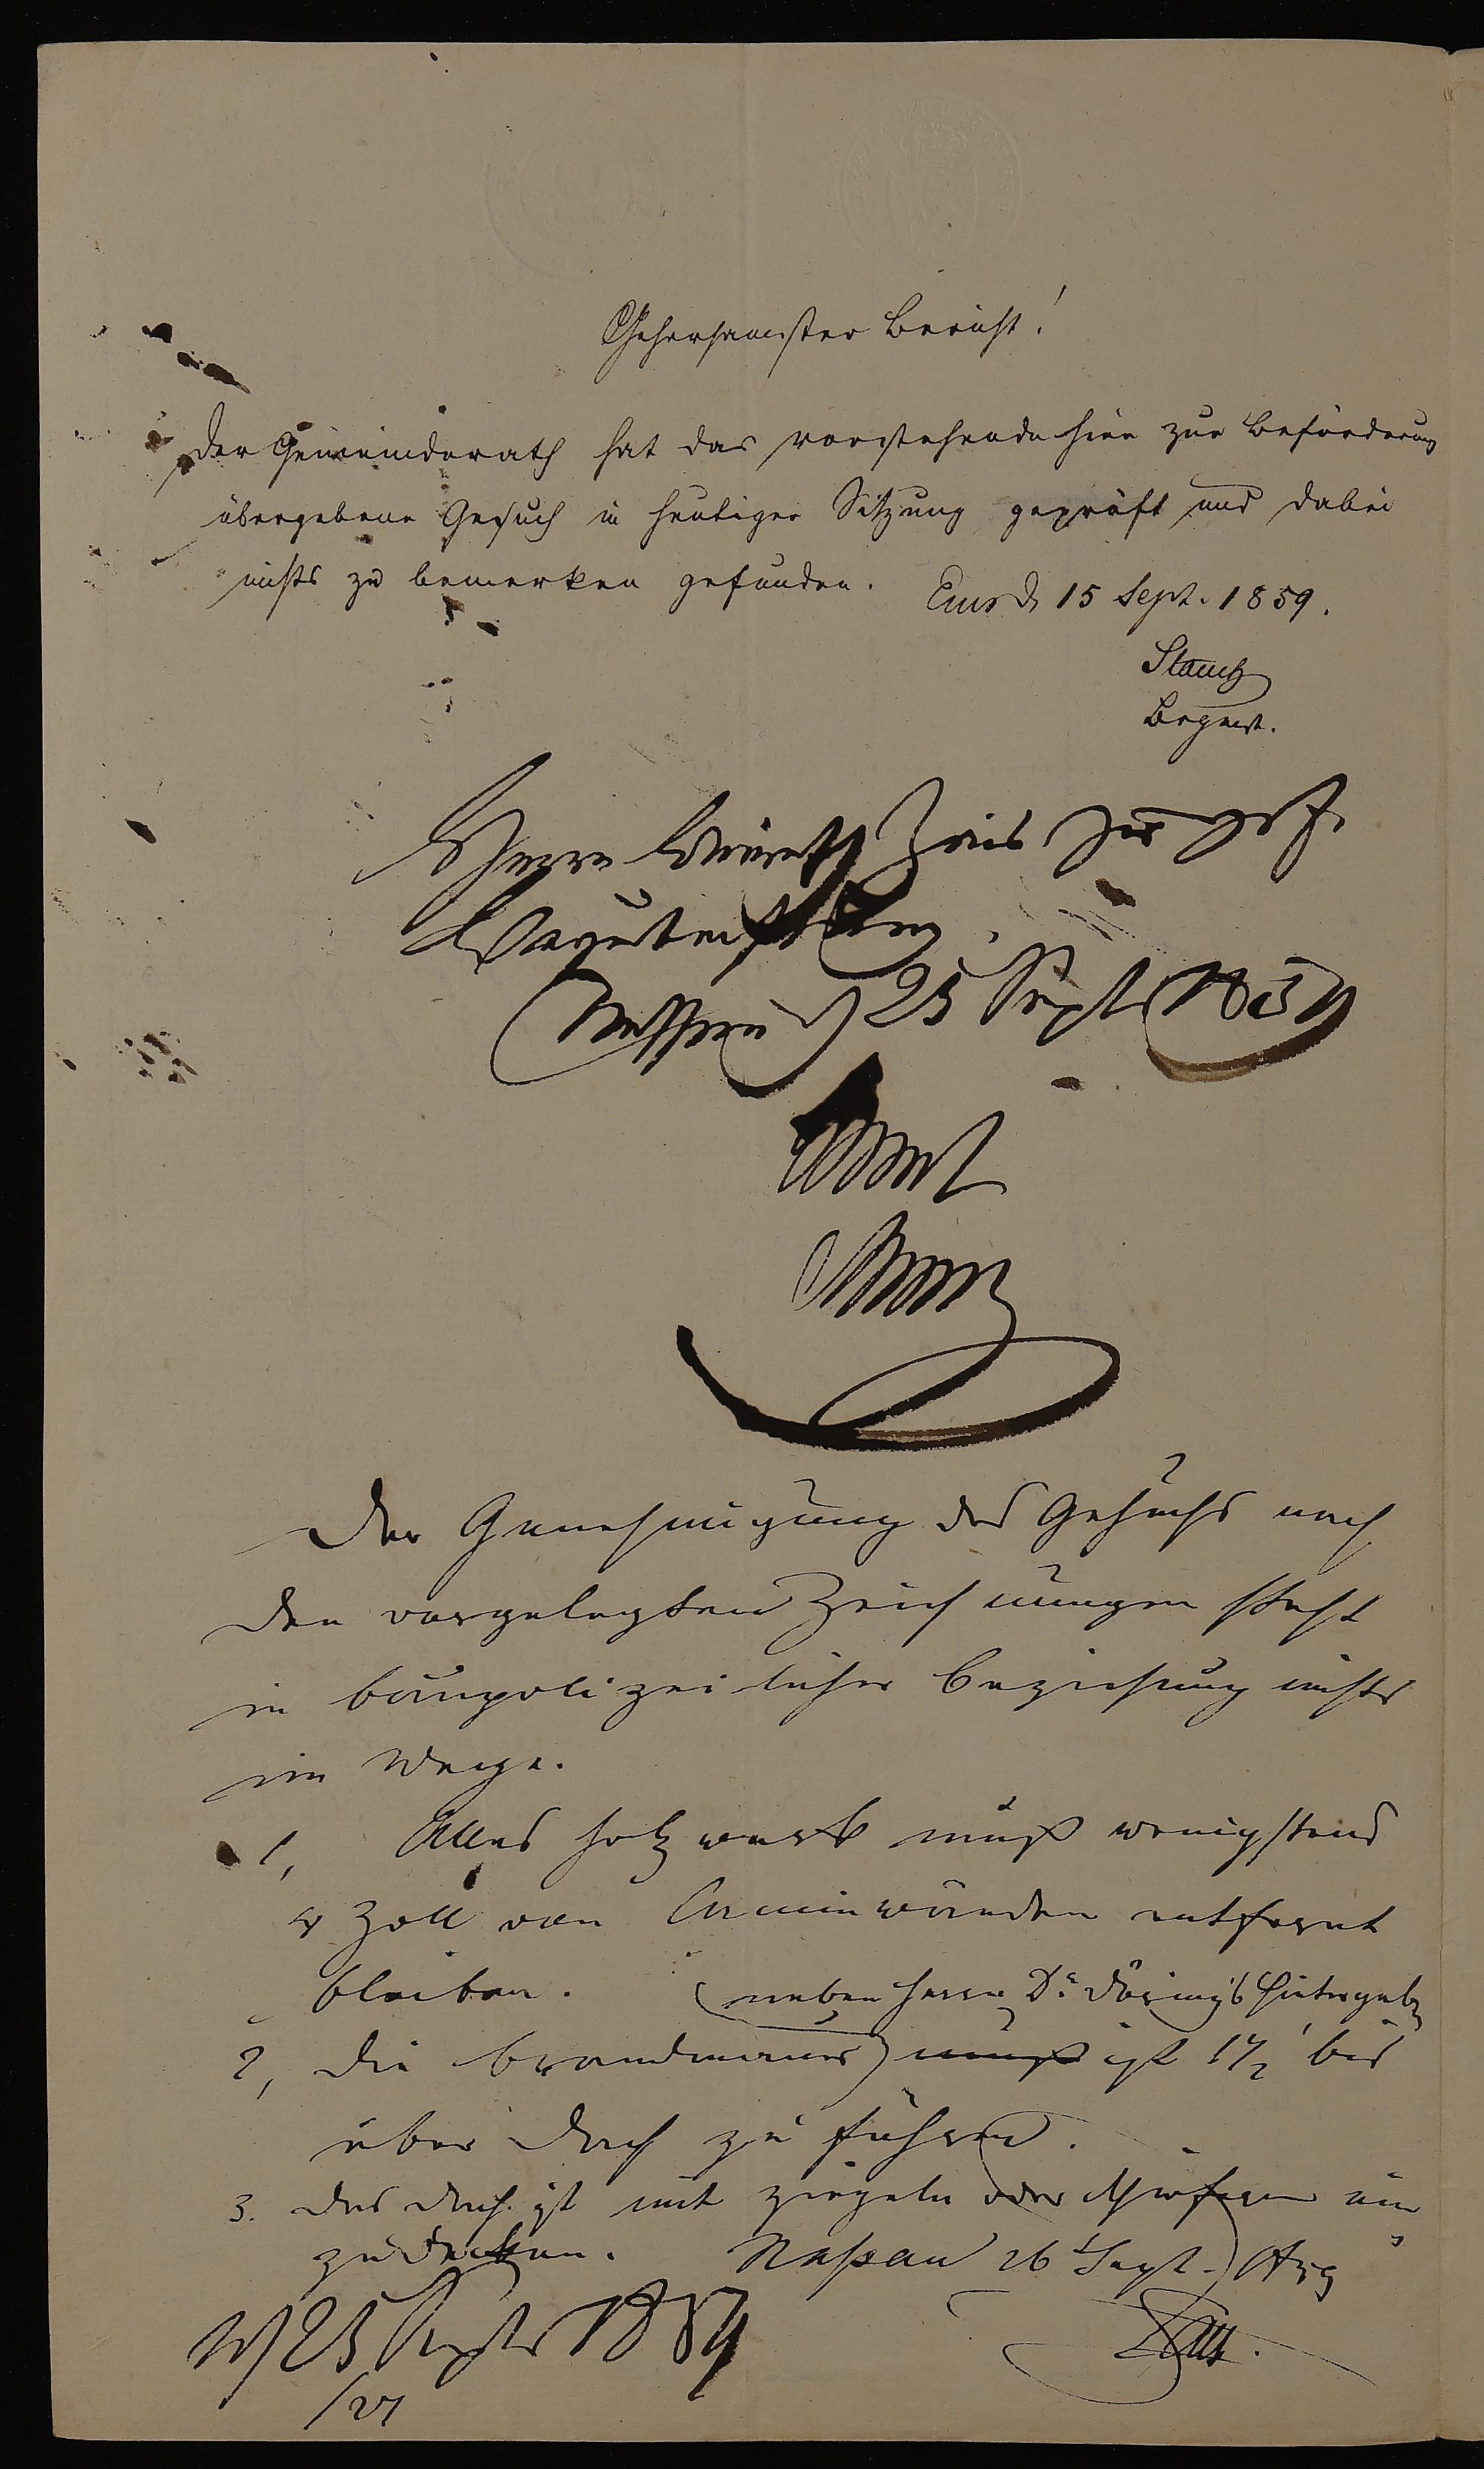 Gehorsamster Bericht!
Der Gemeinderath hat das vorstehende hier zur Beförderung
übergebene Gesuch in heutiger Sitzung geprüft und dabei
nichts zu bemerken gefunden. Ems d 15 Sept. 1859.
Bgmst.
Herrn Zais zur gef.
Begutachtung.
Nassau d 25 Sept 1859
Der Genehmigung des Gesuchs nach
den vorgelegten Zeichnungen steht
in baupolizeilicher Beziehung nichts
im Wege.
1, Alles Holzwerk muß wenigstens
4 Zoll von Caminwänden entfernt
bleiben. (neben Herrn Dr. Döring's Hintergeb.
2, die Brandmauer) muß ist 1 1/2' bis
über Dach zu führen.
3. das Dach ist mit Ziegeln oder Schiefern ein
zudecken. Nassau 26 Sept.
25 Sept 1859
/27